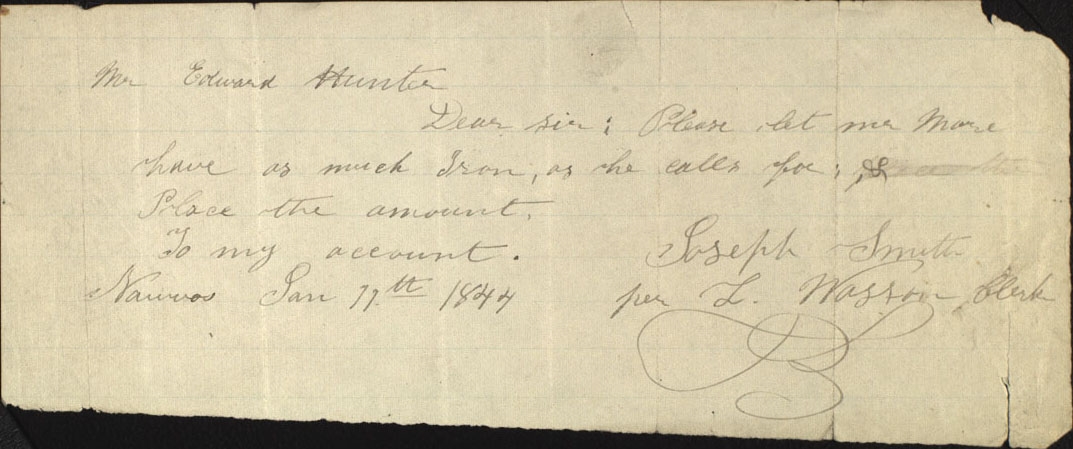 Mr Edward Hunter
Dear sir; Please let mr More
have as much Iron, as he calls for; &
Place the amount.
To my account. Joseph Smith
Nauvoo Jan 17th 1844 per L. Wasson Clerk